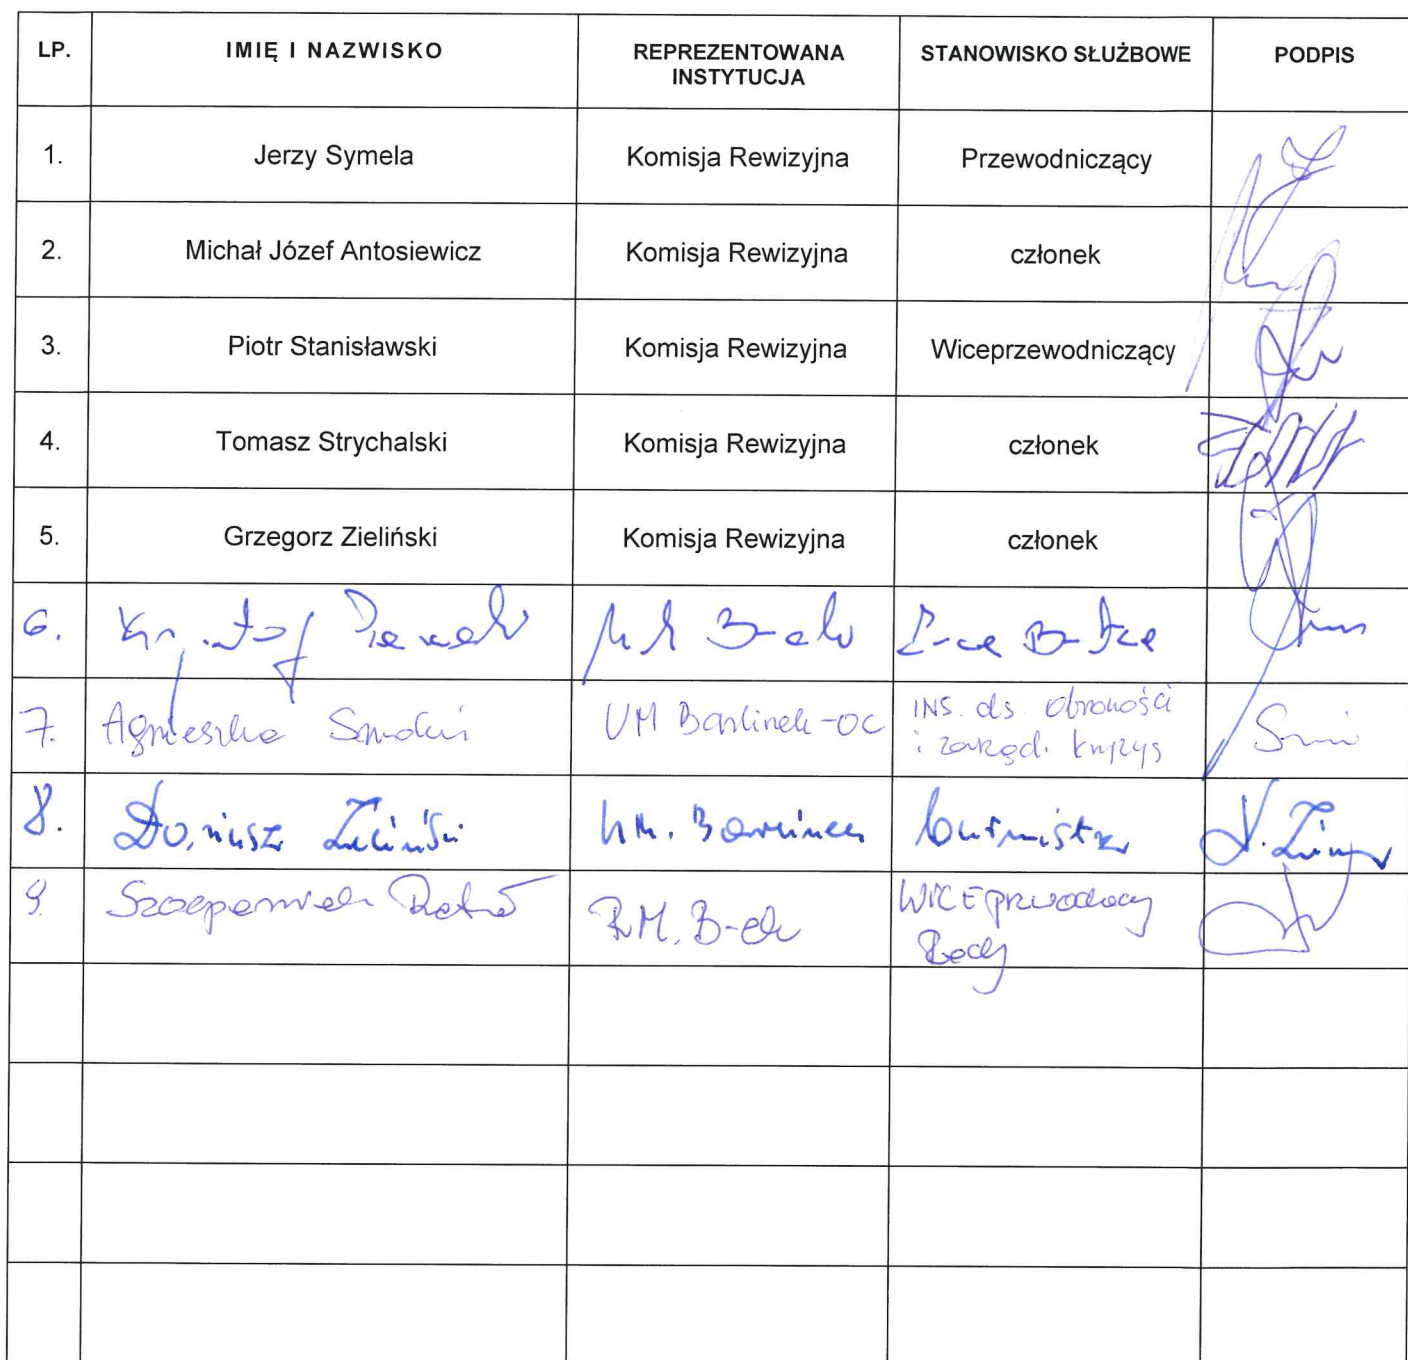 LP. IMIĘ I NAZWISKO REPREZENTOWANA INSTYTUCJA STANOWISKO SŁUŻBOWE PODPIS
1. Jerzy Symela Komisja Rewizyjna Przewodniczący
2. Michał Józef Antosiewicz Komisja Rewizyjna członek
3. Piotr Stanisławski Komisja Rewizyjna Wiceprzewodniczący
4. Tomasz Strychalski Komisja Rewizyjna członek
5. Grzegorz Zieliński Komisja Rewizyjna członek
6.
7. Agnieszka UM Barlinek-OC INS. ds. obroności
i zarząd. kryzys
8. Dariusz Zieliński UM. Barlinek burmistrz
9. Szczepaniak R.M. B-ek WICEprzewodniczący
Rady